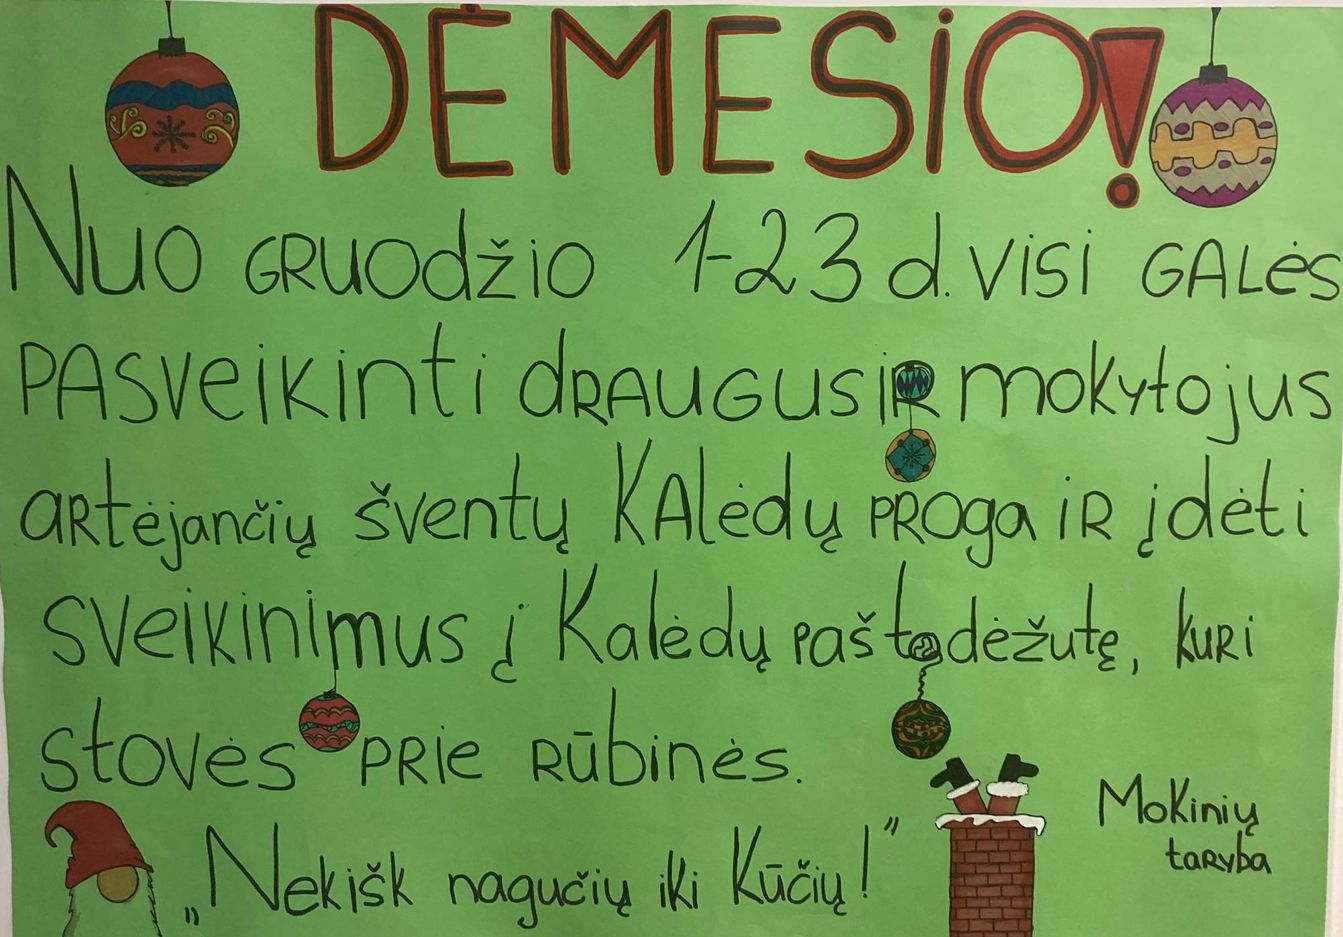 DĖMESIO!
Nuo gruodžio 1-23 d. visi galės
pasveikinti draugus ir mokytojus
artėjančių šventų Kalėdų proga ir įdėti
sveikinimus į Kalėdų paštodėžutę, kuri
stovės prie rūbinės.
„Nekišk nagučių iki Kūčių!”
Mokinių
taryba